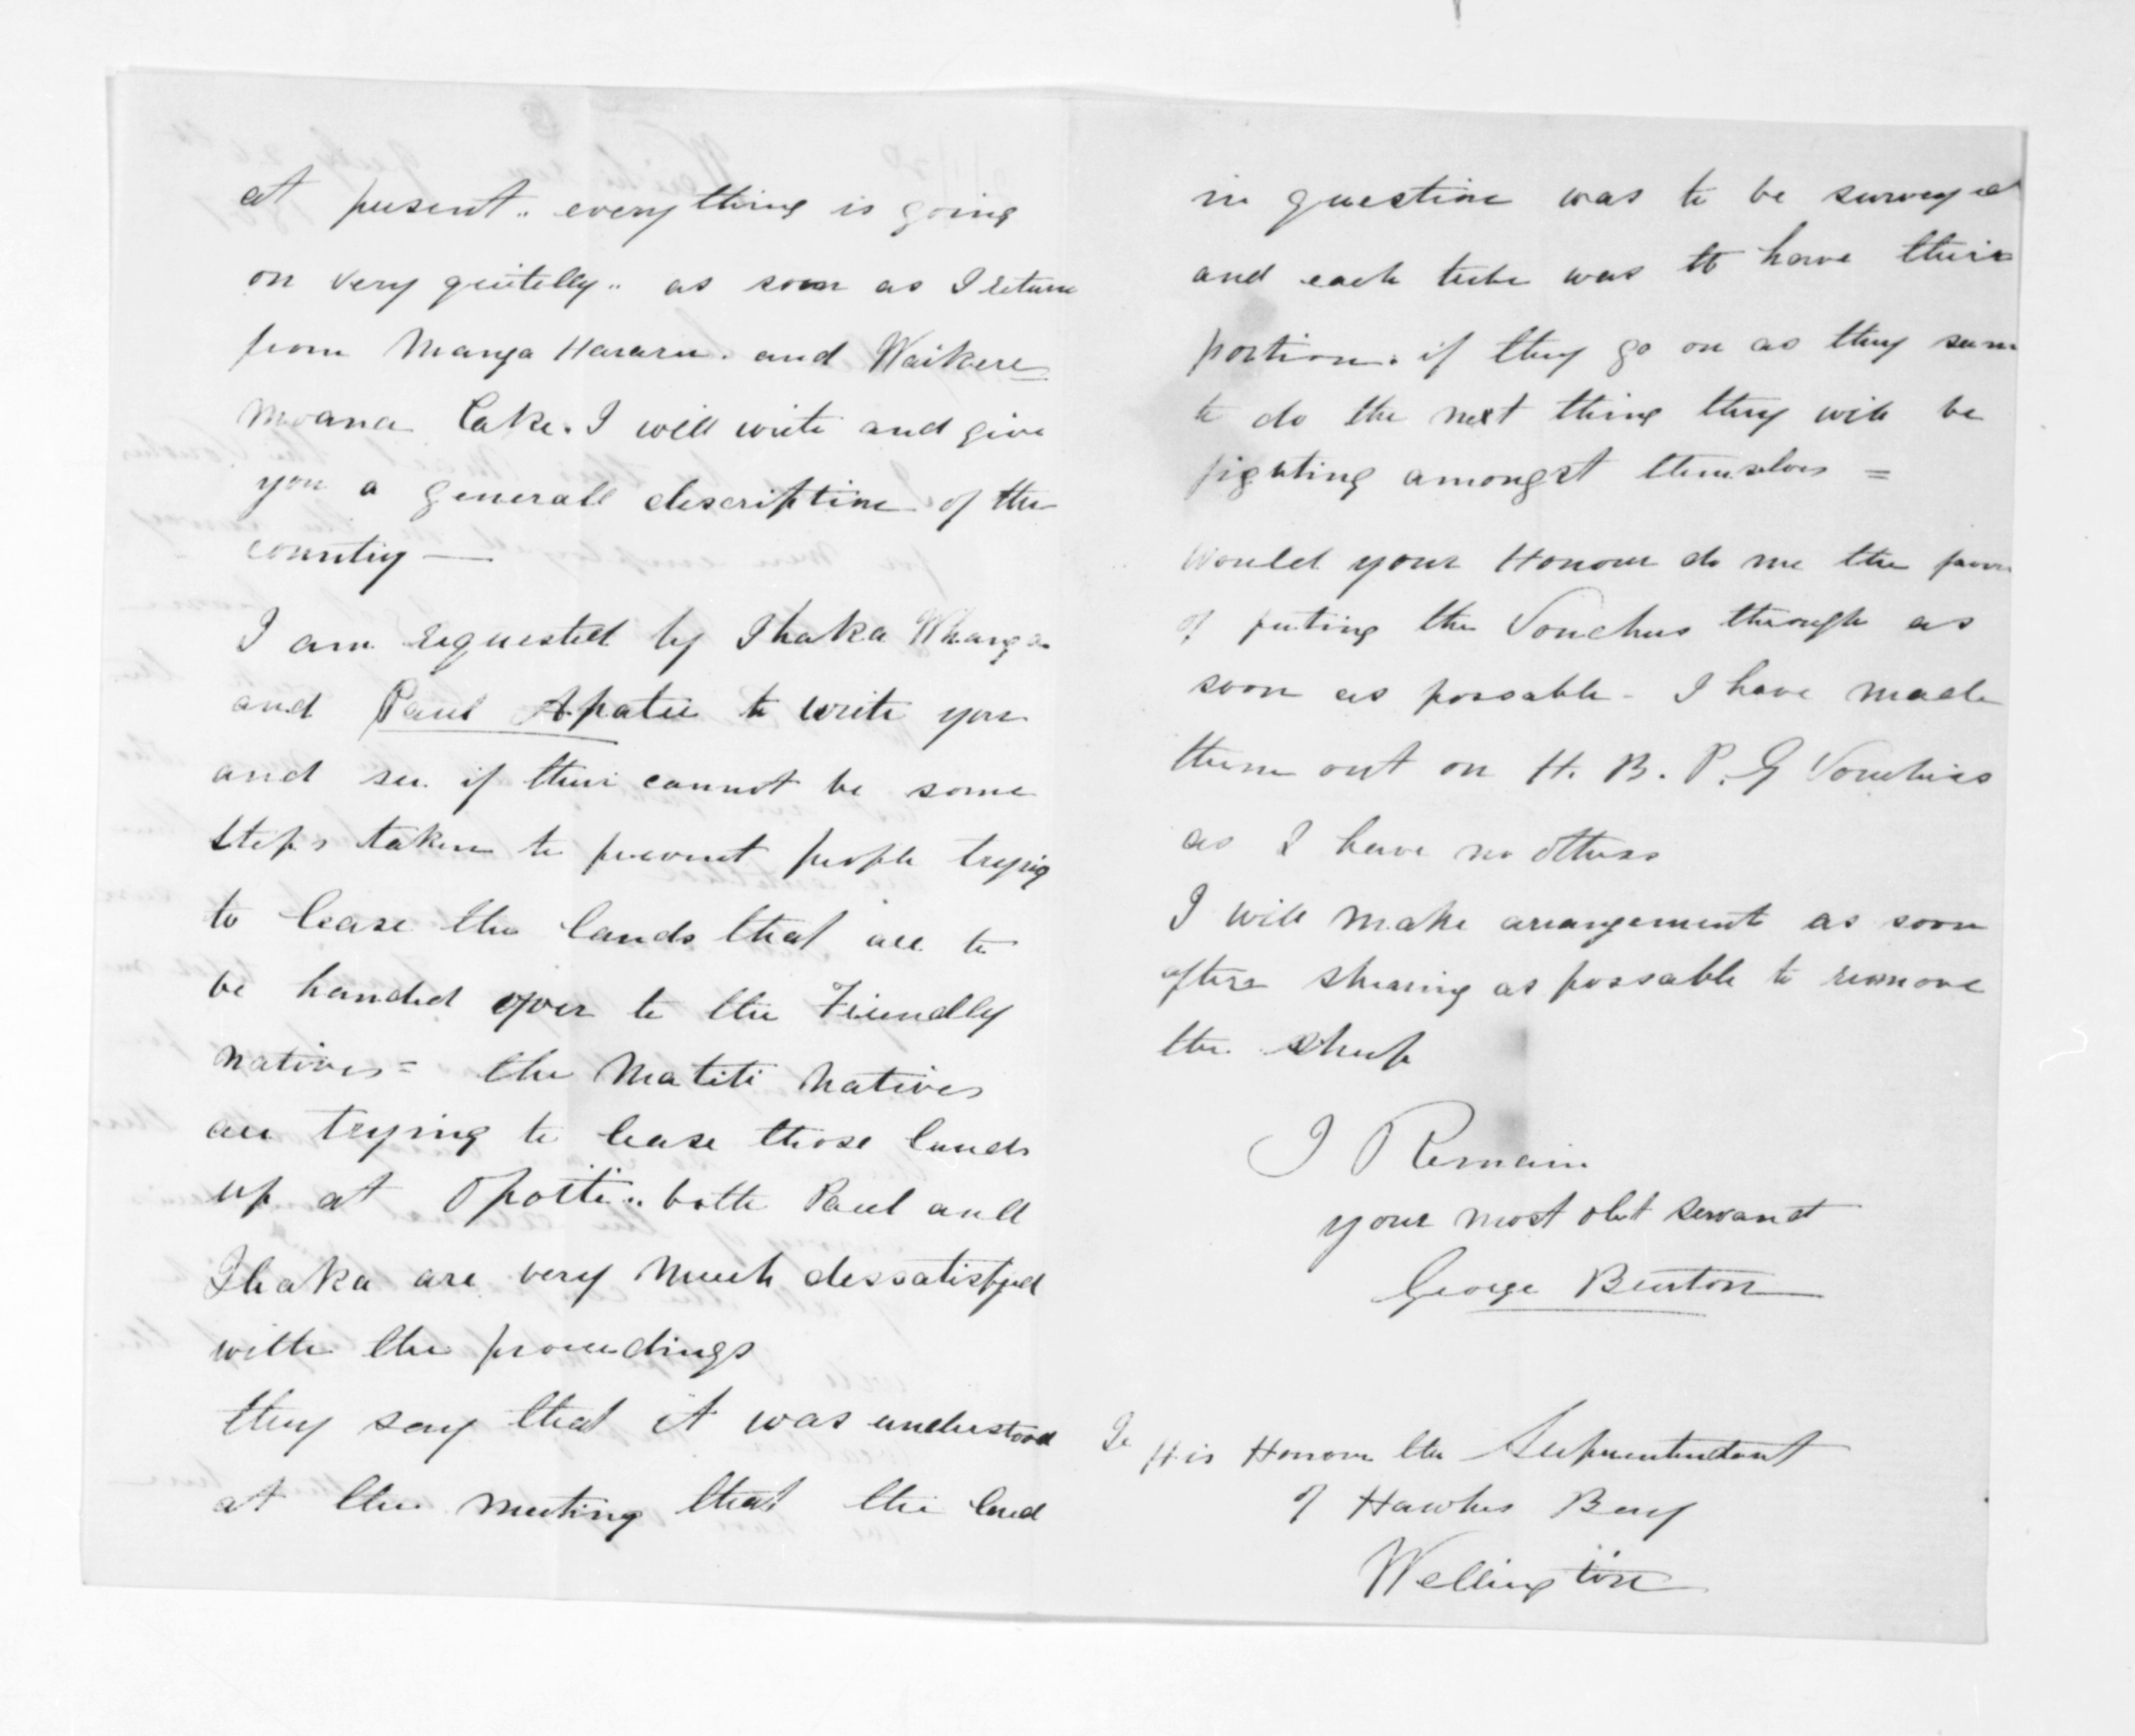 at present.. every thing is going
on very quitelly.. as soon as I return
from Manga Hararu. and Waikere=
moana Lake. I will write and give
you a generall description of the
country —
I am requested by Ihaka Whanga
and Paul Apatu to write you
and see if their cannot be some
steps taken to prevent people trying
to lease the lands that are to
be handed over to the Friendly
natives = the Matiti natives
are trying to lease those lands
up at Opoiti.. both Paul and
Ihaka are very much dessatisfyed
with the proceedings
they say that it was understood
at the meeting that the land
in question was to be surveyed
and each tribe was to have their
portion. if they go on as they seem
to do the next thing they will be
fighting amongst themselves =
Would your Honour do me the favour
of puting the Vouchers through as
soon as possable - I have made
them out on H. B. P. G Vouchers
as I have no others
I will make arrangement as soon
after shearing as possable to remove
the sheep
I Remain
your most obt servant
George Burton
To His Honour the Superintendant
of Hawkes Bay
Wellington